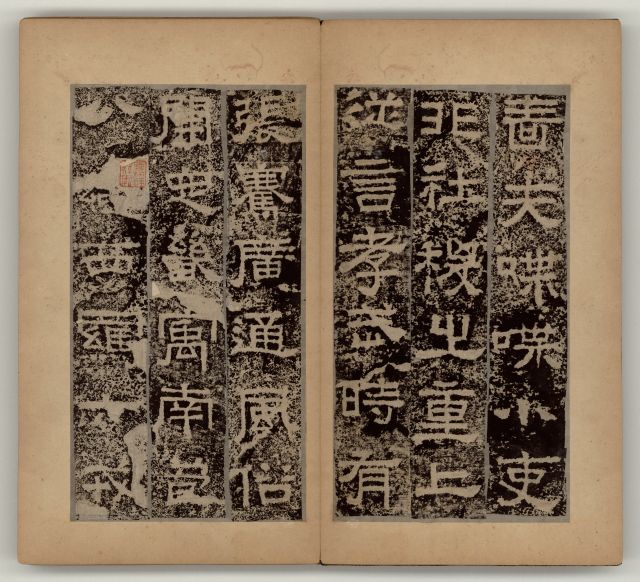 嗇夫喋喋小吏
非社稷之重上
從言孝武時有
張騫廣通風俗
開定畿寓南苞
八 西羈六戎